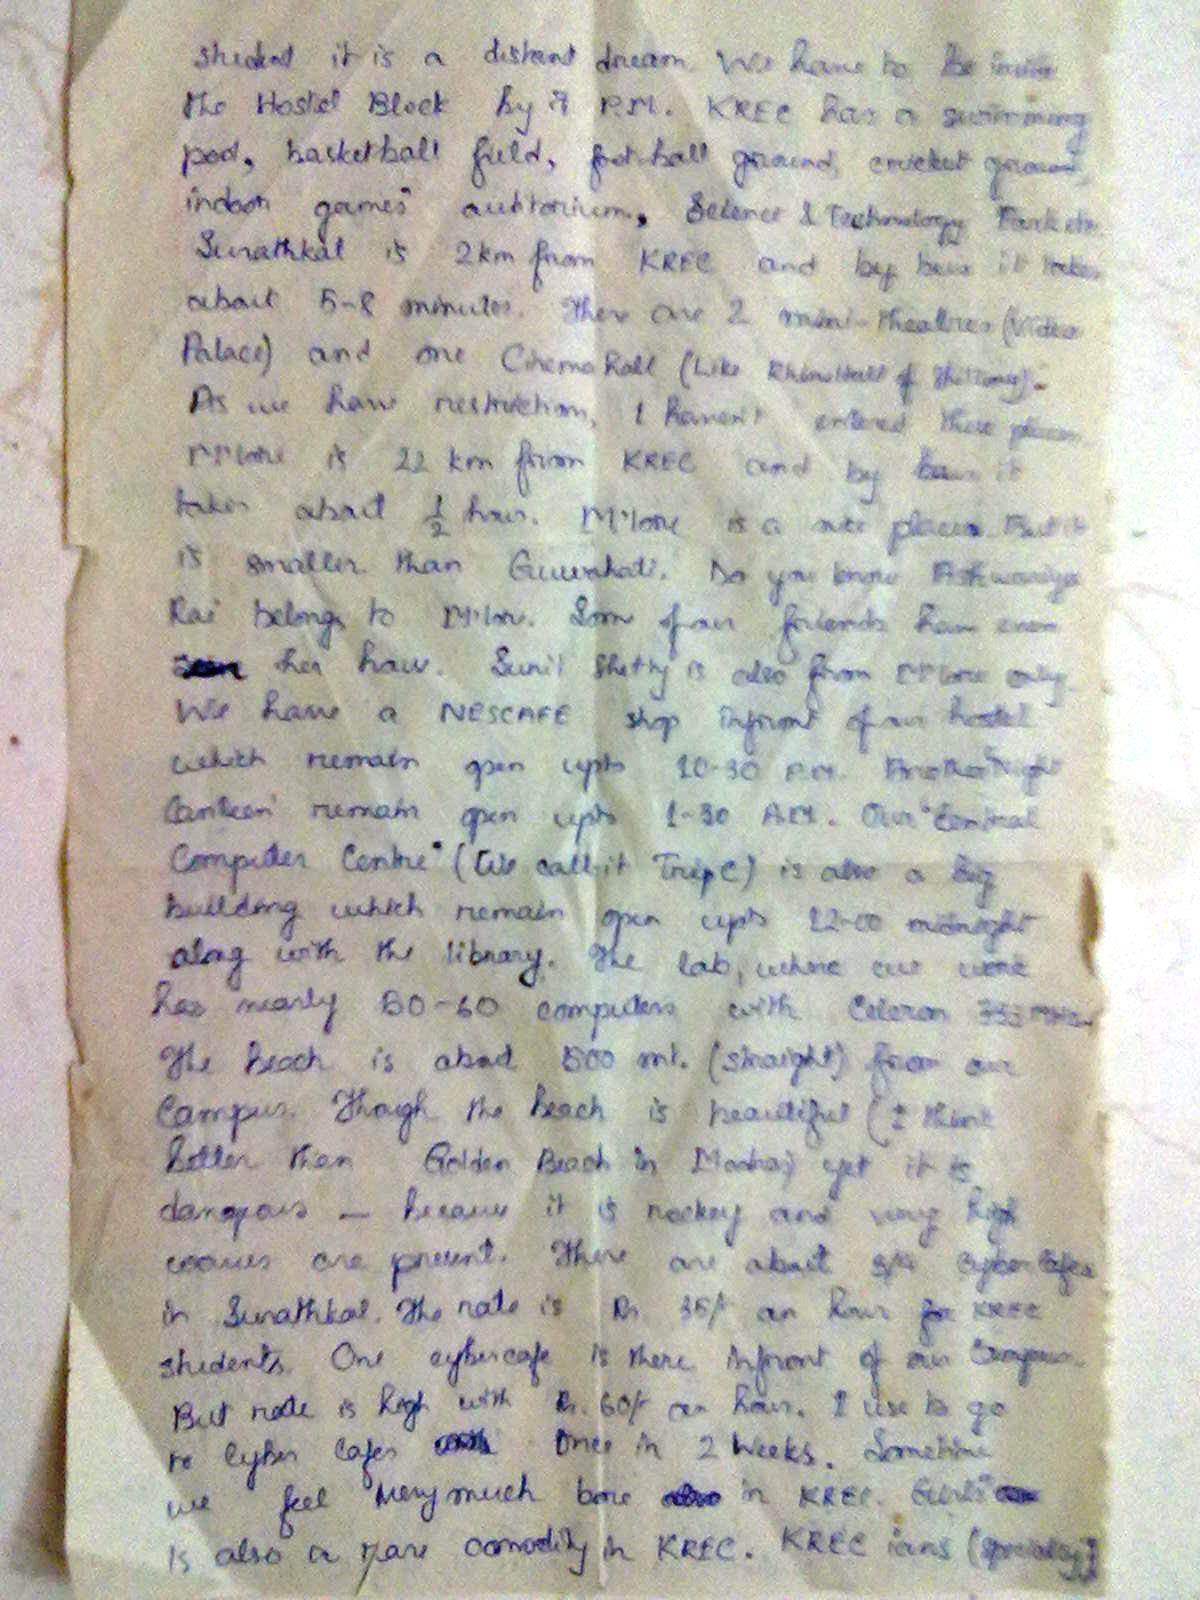 student it is a distant dream. We have to be
the Hostel Block by 9 P.M. KREC has a swimming
pool, basketball field, football ground, cricket ground,
indoor games auditorium, Science & Technology Park etc.
Surathkal is 2km from KREC and by bus it takes
about 5-8 minutes. There are 2 mini-theatres (Video
Palace) and one Cinema hall (Like of Shillong).
As we have restriction, I haven't entered these places.
M'lore is 22 km from KREC and by bus it
takes about 1/2 hour. M'lore is a nice place. But it
is smaller than Guwahati. Do you know Ashwariya
Rai belongs to M'lore. Some of our friends have even
seen her house. Sunil Shetty is also from M'lore only.
We have a NESCAFE shop infront of our hostel
which remain open upto 10-30 P.M. Another "Night
Canteen" remain open upto 1-30 A.M. Our "Central
Computer Centre" (We call it Trip C) is also a big
building which remain open upto 12-00 midnight
along with the library. The lab, where
has nearly 50-60 computers with Celeron
The beach is about 500 mt. (straight) from our
Campus. Though the beach is beautiful (I think
better than Golden Beach in Madras) yet it is
dangrous — because it is rockey and very high
waves are present. There are about 3/4 Cyber Cafes
in Surathkal. The rate is Rs. 35/- an hour for KREC
students. One cybercafe is there infront of our Campus.
But rate is high with Rs. 60/- an hour. I use to go
to Cyber Cafes Once in 2 Weeks. Sometime
we feel very much bore in KREC. Girls
is also a rare comodity in KREC. KREC ians (specialay